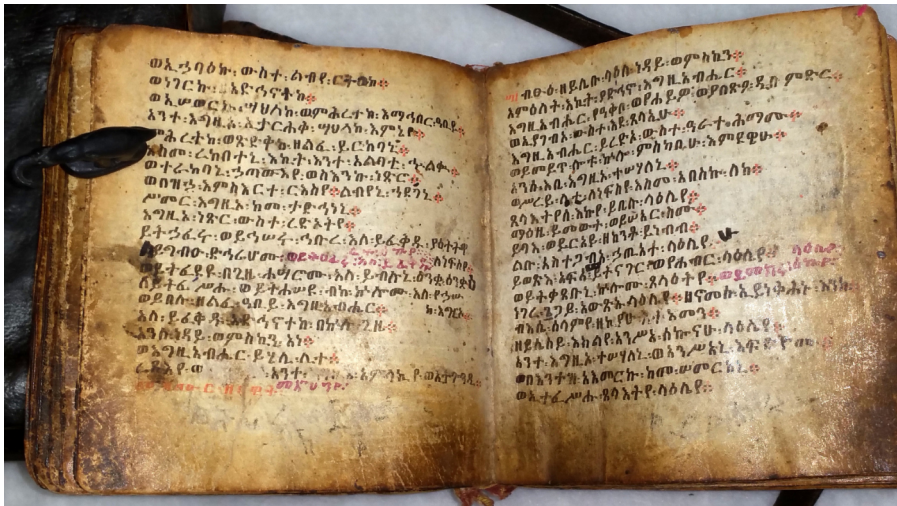 ወኢኀባዕኩ፡ ውስተ፡ ልብየ፡
ወነገርኩ፡ አድኅኖተከ፨
ወኢሠወርኩ፡ ሣህለከ፡ ወምሕረተከ፡ እማኅበር፡
አንተ፡ እግዚኦ፡ ኢታርሕቅ፡ ሣህለከ፡ እምኔየ፨
ምሕረትከ፡ ወጽድቅከ፡ ዘልፈ፡ ይርከባኒ፨
እስመ፡ ረከበተኒ፡ እኪት፡ እንተ፡ አልባቲ፡ ኍልቍ፨
ወተራከባኒ፡ ኃጣውእየ፡ ወስእንኩ፡ ነጽሮ፨
ወበዝኃ፡ እምስእርተ፡ ርእስየ፡ ልብየኒ፡ ኀደገኒ፨
ሥመር፡ እግዚኦ፡ ከመ፡ ታድኅነኒ፨
እግዚኦ፡ ነጽር፡ ውስተ፡ ረዲኦትየ፨
ይትኀፈሩ፡ ወይኀሠሩ፡ ኅቡረ፡ እለ፡ ይፈቅዱ፡
ለነፍስየ፨
ወይትፈደዩ፡ በጊዜ፡ ሐፍሮሙ፡ እለ፡ ይብሉኒ፡ እንቋዕ፡ እንቋዕ
ለይትፈሥሑ፡ ወይትሐሠዩ፡ ብከ፡ ኵሎሙ፡ እለ፡
ወይበሉ፡ ዘልፈ፡ ዓቢይ፡ እግዚአብሔር፨
እለ፡ ይፈቅዱ፡ አድኅኖተከ፡ በኵሉ፡ ጊዜ፨
አንሰ፡ ነዳይ፡ ወምስኪን፡ አነ፨
ወእግዚአብሔር፡ ይሄሊ፡ ሊተ፨
ረዳእየ፡ አንተ፡
ብፁዕ፡ ዘይሌቡ፡ ላዕለ፡ ነዳይ፡ ወምስኪን፨
እምዕለት፡ እኪት፡ ያድኅኖ፡ እግዚአብሔር፨
እግዚአብሔር፡ የዓቅቦ፡ ወያሐይዎ፡ ወያበፅዖ፡ ዲበ፡ ምድር፨
ወኢያገብኦ፡ ውስተ፡ እደ፡ ጸላኢሁ፨
እግዚአብሔር፡ ይረድኦ፡ ውስተ፡ ዓራተ፡ ሕማሙ፨
ወይመይጥ፡ ሎቱ፡ ኵሎ፡ ምስካቢሁ፡ እምደዌሁ፨
አንሰ፡ እቤ፡ እግዚኦ፡ ተሣሃለኒ፨
ወሥረይ፡ ላቲ፡ ለነፍስየ፡ እስመ፡ አበስኩ፡ ለከ፨
ጸላእትየሰ፡ እኩየ፡ ይቤሉ፡ ላዕሌየ፨
ማዕዜ፡ ይመውት፡ ወይሠዐር፡ ስሙ፨
ይባእ፡ ወይርአይ፡ ዘከንቶ፡ ይነብብ፨
ልቡ፡ አስተጋብአ፡ ኃጢአተ፡ ላዕሌየ፨
ይወጽእ፡ አፍአ፡ ይትናገር፡ ወየኀብር፡ ላዕሌየ፨
ወይትቃጸቡኒ፡ ኵሎሙ፡ ጸላእትየ፨
ነገረ፡ ጌጋይ፡ አውጽኡ፡ ላዕሌየ፨
ብእሴ፡ ሰላምየ፡ ዘኪያሁ፡ እትአመን፨
ዘይሴሰይ፡ እክልየ፡ አንሥአ፡ ሰኰናሁ፡ ላዕሌየ፨
አንተ፡ እግዚኦ፡ ተሣሃለኒ፡ ወአንሥአኒ፡ እፍድዮሙ፨
ወበእንተዝ፡ አእመርኩ፡ ከመ፡ ሠመርከኒ፨
ወኢተፈሥሑ፡ ጸላእትየ፡ ላዕሌየ፨